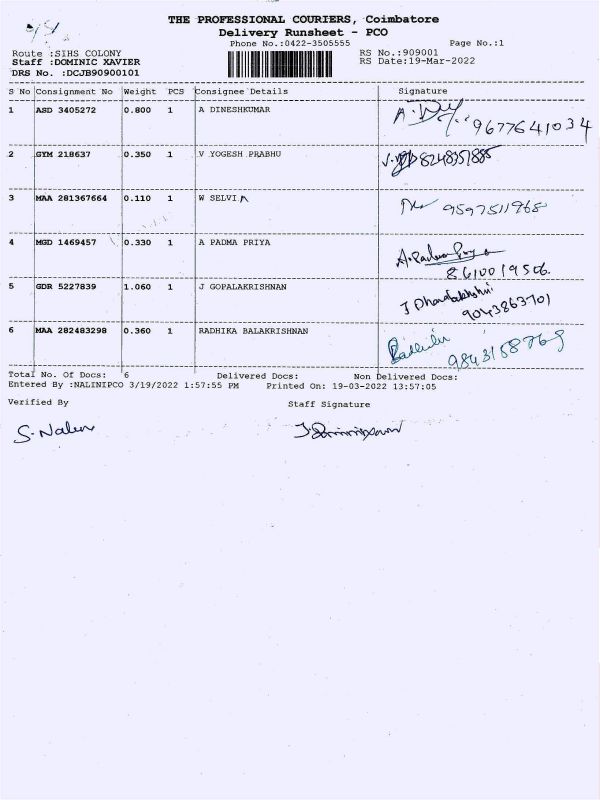 THE PROFESSIONAL COURIERS, Coimbatore
Delivery Runsheet - PCO
Phone No.:0422-3505555 Page No.:1
Route :SIHS COLONY RS No.:909001
Staff :DOMINIC XAVIER RS Date:19-Mar-2022
DRS No. :DCJB90900101
S No Consignment No Weight PCS Consignee Details Signature
1 ASD 3405272 0.800 1 A DINESHKUMAR
9677641034
2 GYM 218637 0.350 1 V YOGESH PRABHU
8248351885
3 MAA 281367664 0.110 1 W SELVIA
9597511968
4 MGD 1469457 0.330 1 A PADMA PRIYA
A. Padma Priya
8610019506.
5 GDR 5227839 1.060 1 J GOPALAKRISHNAN
J Dhanalakshmi
9043863701
6 MAA 282483298 0.360 1 RADHIKA BALAKRISHNAN
Radhika
9843158769
Total No. Of Docs: 6 Delivered Docs: Non Delivered Docs:
Entered By :NALINIPCO 3/19/2022 1:57:55 PM Printed On: 19-03-2022 13:57:05
Verified By Staff Signature
S. Nalini